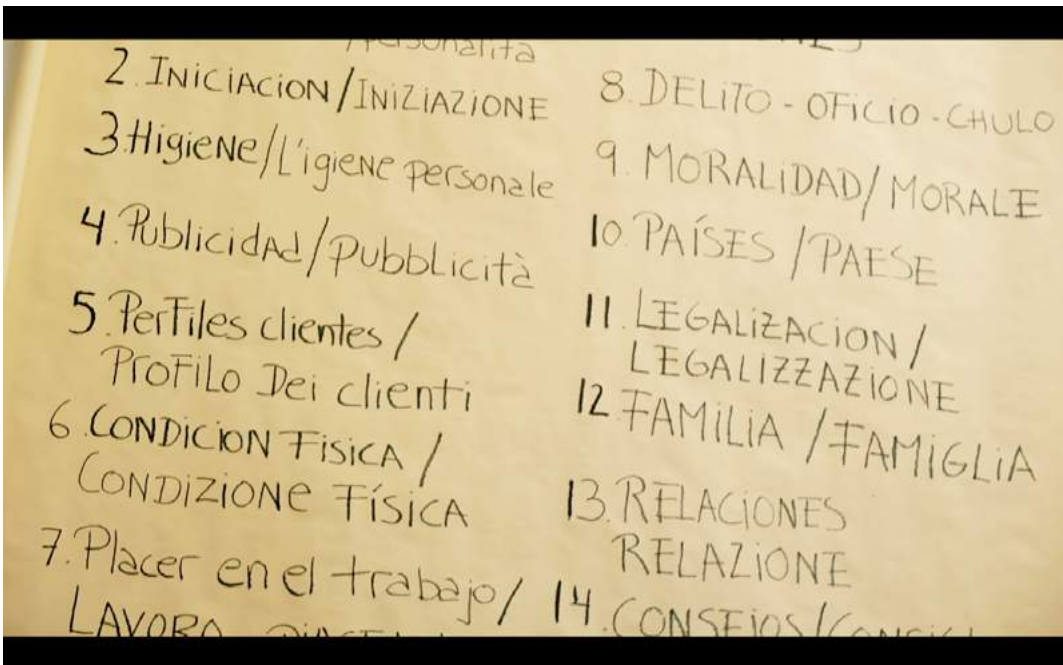 2. INICIACION/INIZIAZIONE
3. HigieNe/L'igieNe personale
4. Publicidad/pubblicità
5. Perfiles clientes /
Profilo Dei clienti
6. CONDICION FISICA /
CONDIZIONE FÍSICA
7. Placer en el trabajo/
LAVORO
8. DELITO - OFICIO - CHULO
9. MORALIDAD/MORALE
10. PAÍSES / PAESE
11. LEGALIZACION /
LEGALIZZAZIONE
12. FAMILIA / FAMIGLIA
13. RELACIONES
RELAZIONE
14. CONSEJOS/